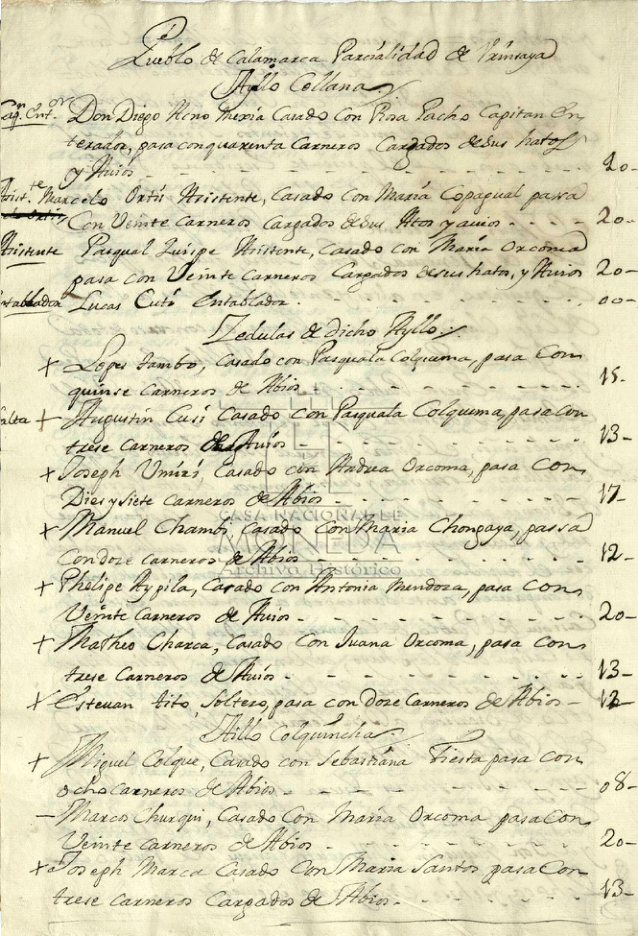 Pueblo de Calamarca Parcialidad de Urinsaya
Ayllo Collana
Capn. Entor. Don Diego Mexia Casado Con Rosa Pacho Capitan En
terador, pasa con quarenta Carneros Cargados de sus hatos
y Avios - - - - 20-
Asistte. Marcelo Ortis Asistente, Casado con Maria Copagual passa
Con Veinte Carneros Cargados de sus Atos y avios - - - - 20-
Asistente Pasqual Quispe Asistente, Casado con Maria Orcoma
pasa con Veinte Carneros Cargados de sus hatos, y Avios 20-
Entablador Lucas Cuti Entablador. - - - - 00-
Zedulas de dicho Ayllo
+ Lopes tambo, Casado con Pasquala Colquema, pasa Con
quinse Carneros de Abios - - - - 15-
falta + Augustin Cusi Casado con Pasquala Colquema, pasa con
trese Carneros de Avios - - - - 13-
+ Joseph Umiri, Casado con Andrea Orcoma, pasa con
Dies y siete Carneros de Abios - - - - 17-
+ Manuel Chambi Casado Con Maria Chongaya, passa
Con doze carneros de Abios - - - - 12-
+ Phelipe Aypila, Casado con Antonia Mendoza, pasa con
Veinte Carneros de Avios - - - - 20-
+ Matheo Charca, Casado Con Juana Orcoma, pasa con
trese Carneros de Avios - - - - 13-
+ Estevan tito, Soltero, pasa con doze Carneros de Abios - 12-
Aillo Colquincha
+ Miguel Colque, Casado con Sebastiana Fiesta pasa con
ocho Carneros de Abios - - - - 08-
- Marcos Churqui, Casado Con Maria Orcoma pasa Con
Veinte carneros de Abios - - - - 20-
+ Joseph Marca Casado Con Maria Santos pasa Con
trese carneros Cargados de Abios - - - - 13-
CASA NACIONAL DE
MONEDA
Archivo Histórico